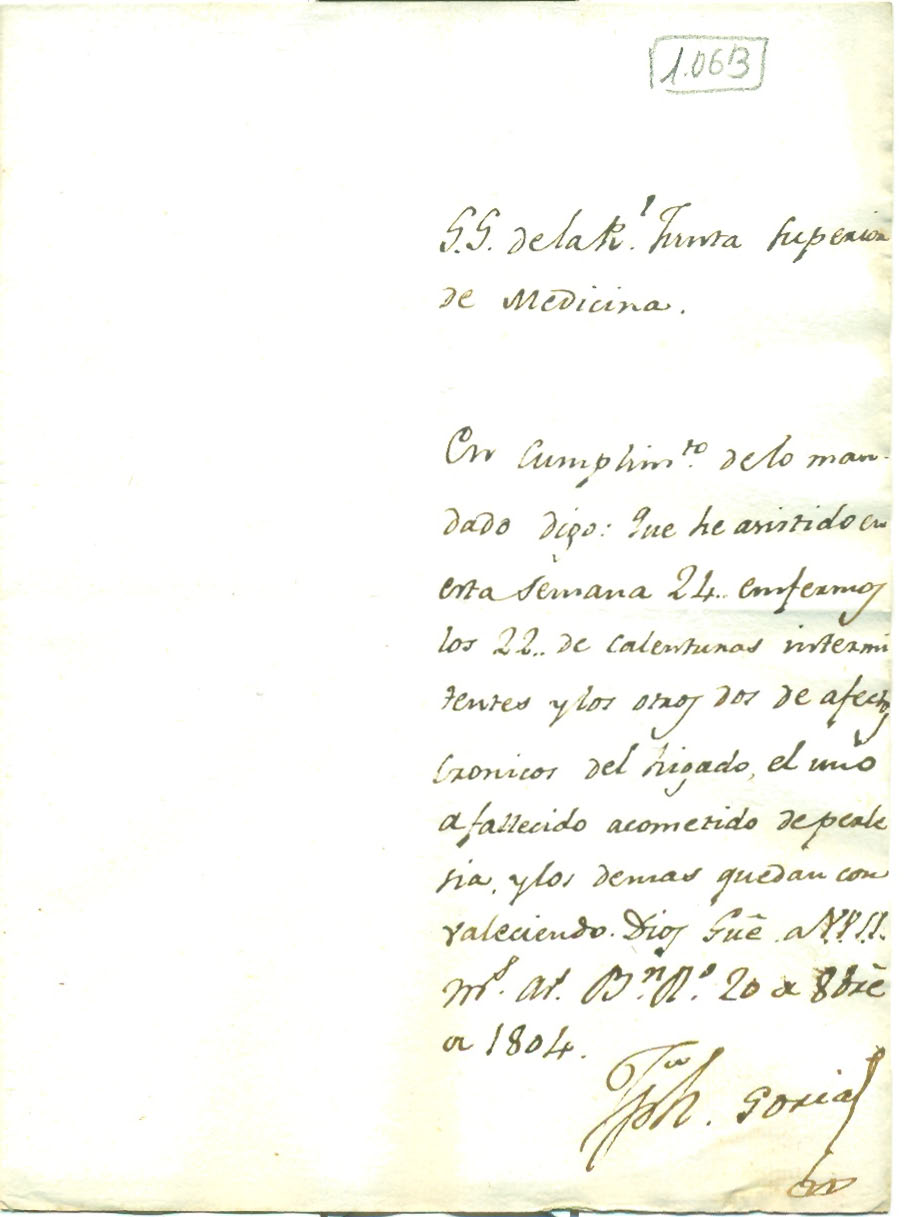 1.063
S.S. de la Rl. Junta Superior
de Medicina.
En Cumplimto. de lo man-
dado digo: Que he asistido en
esta Semana 24.. enfermos
los 22.. de Calenturas intermi
tentes y los otros dos de afectos
Cronicos del higado, el uno
a fallecido acometido de perle
sia, y los demas quedan con
valeciendo. Dios Gue. a VV.SS.
ms. as. 20 de 8bre
de 1804.
Jph. Soria